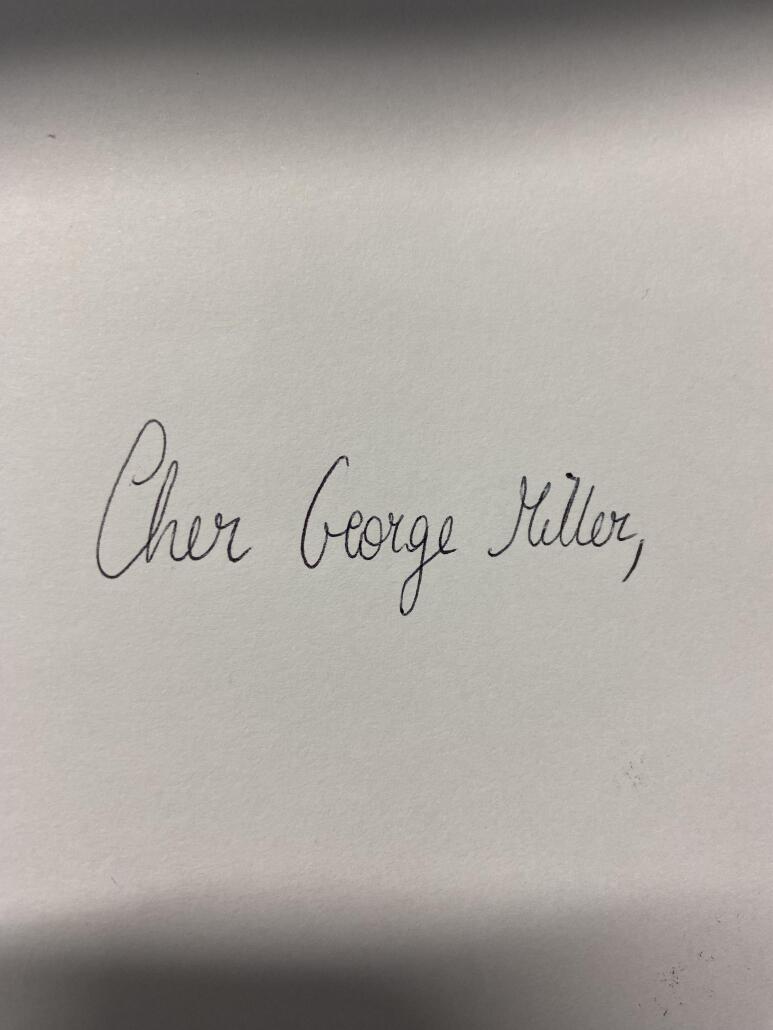 Cher George Miller,